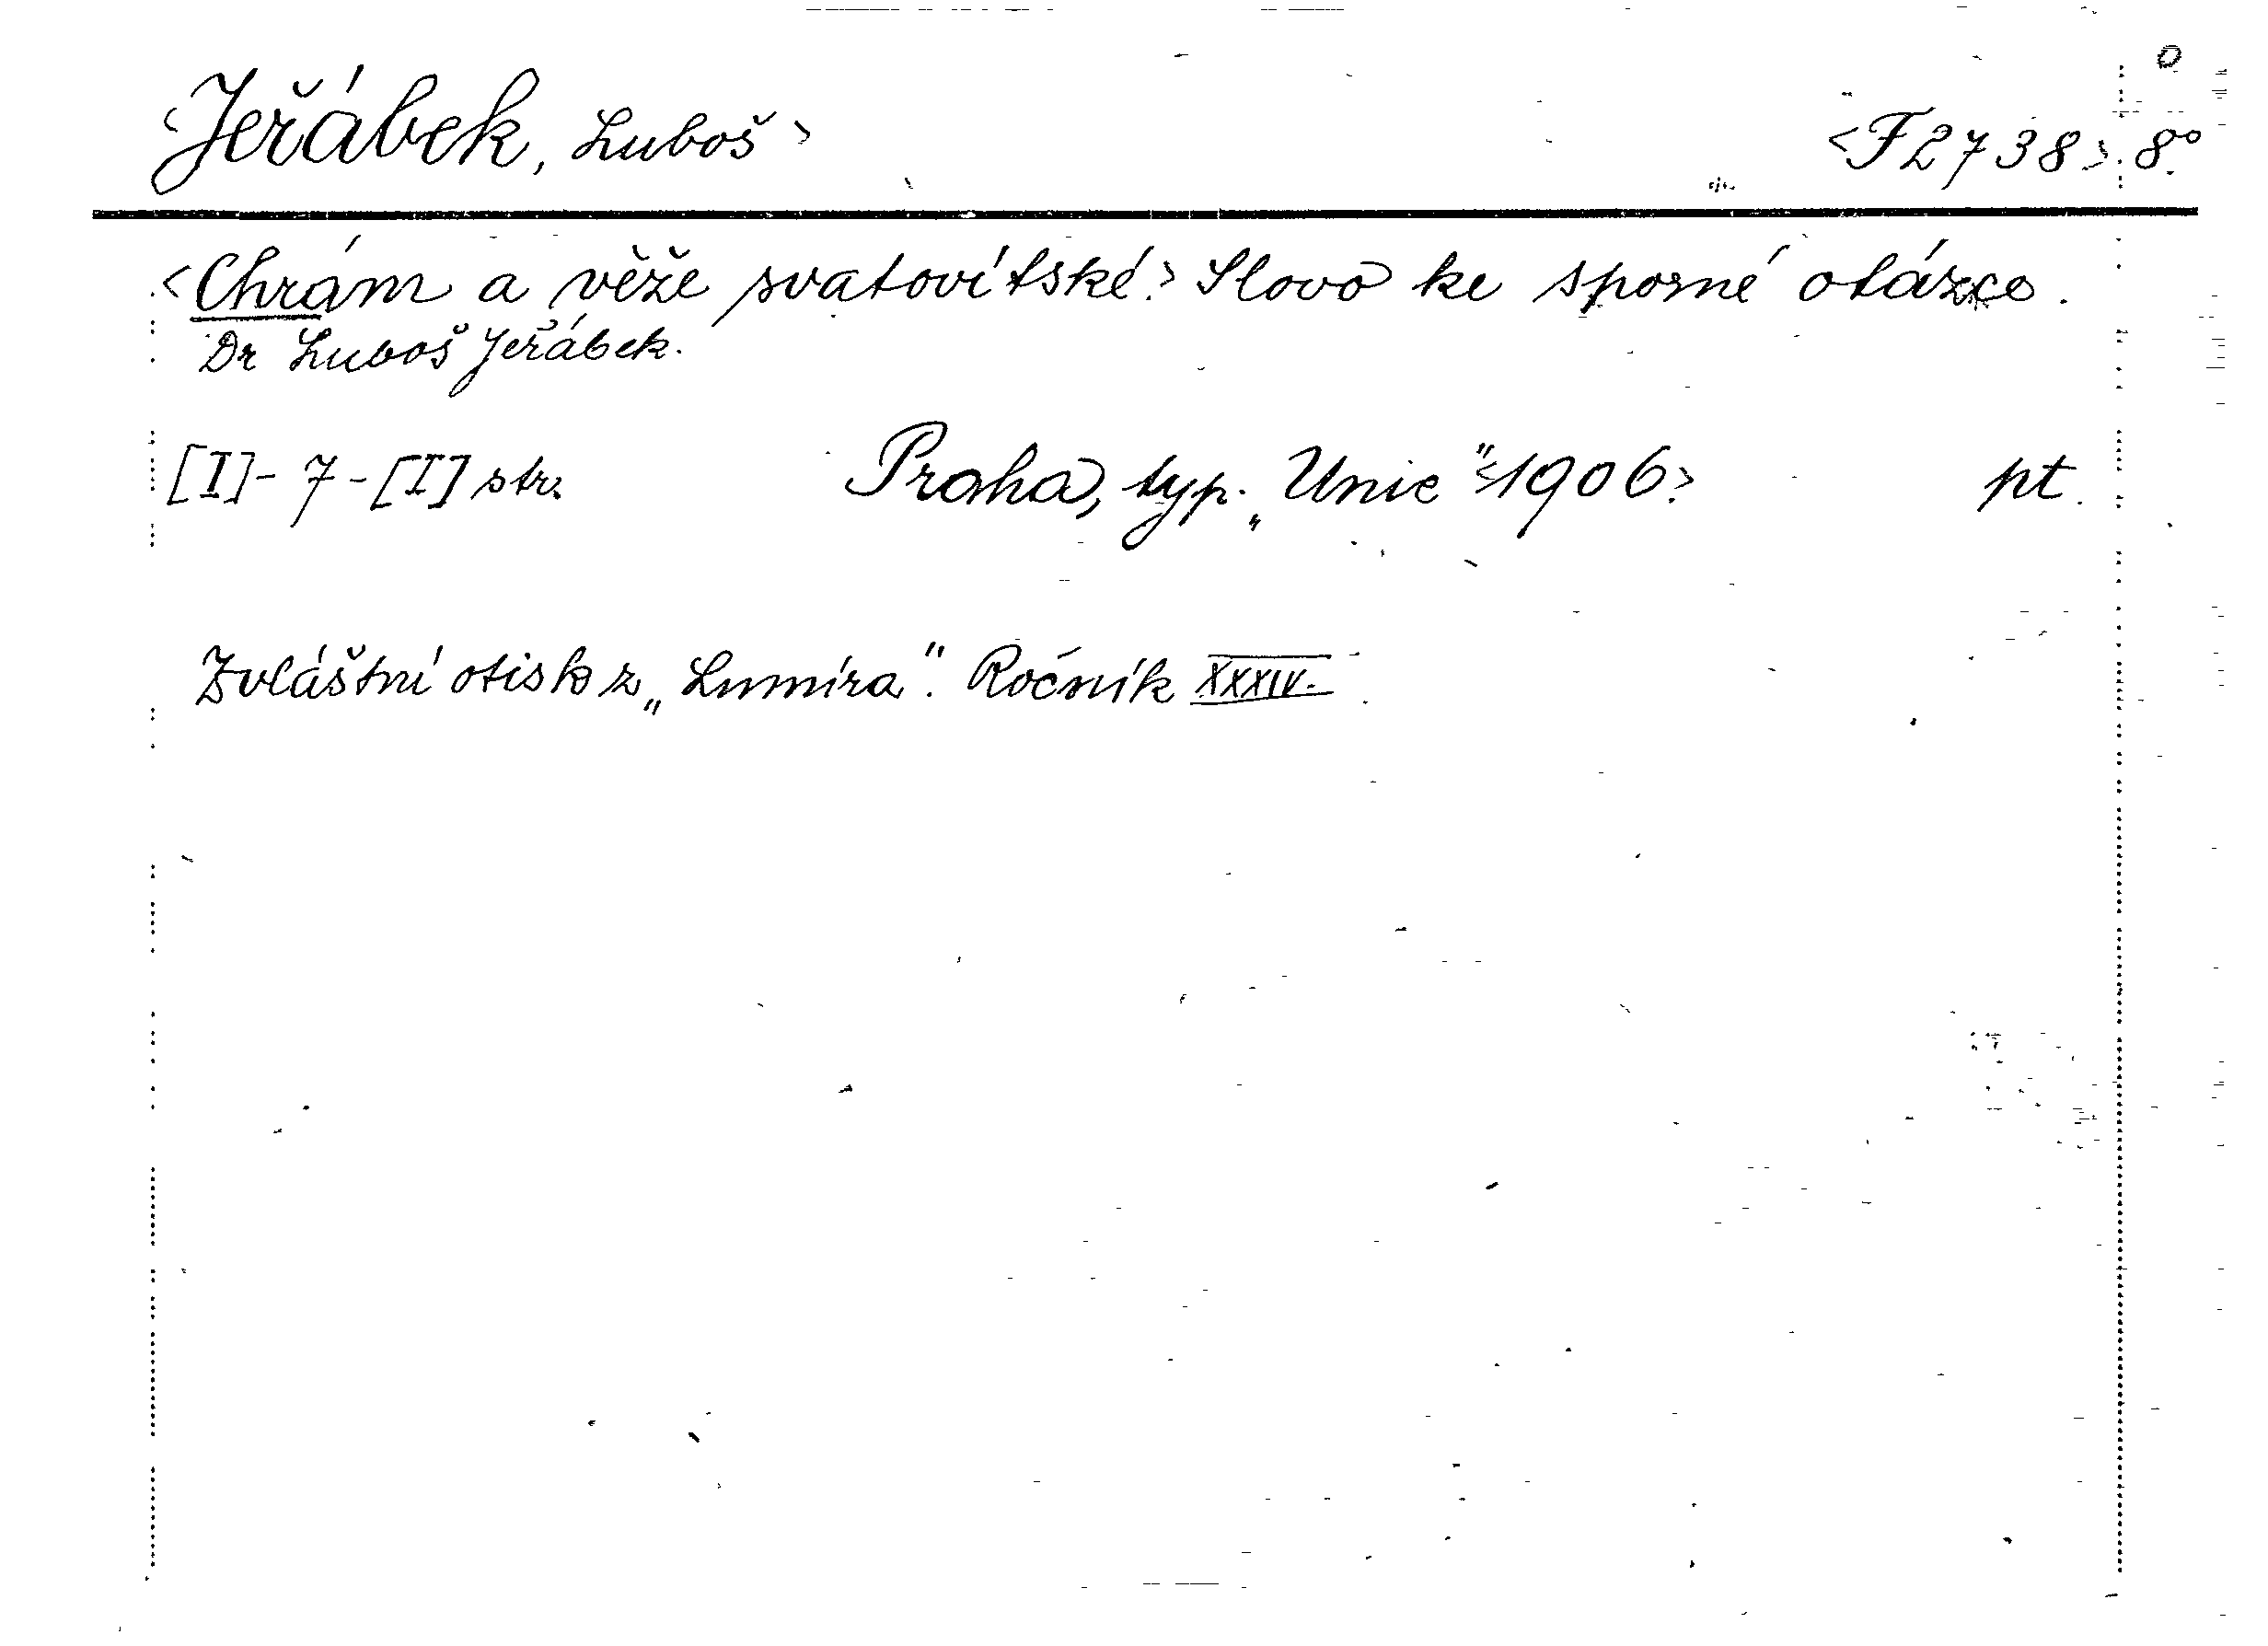 <Jeřábek, Luboš> <F 2738>. 8°.
<Chrám a věže svatovítské.> Slovo ke sporné otázce.
Dr Luboš Jeřábek.
[I]-7-[I] str. Praha, typ. „Unie" <1906.> pt.
Zvláštní otisk z „Lumíra". Ročník XXXIV.